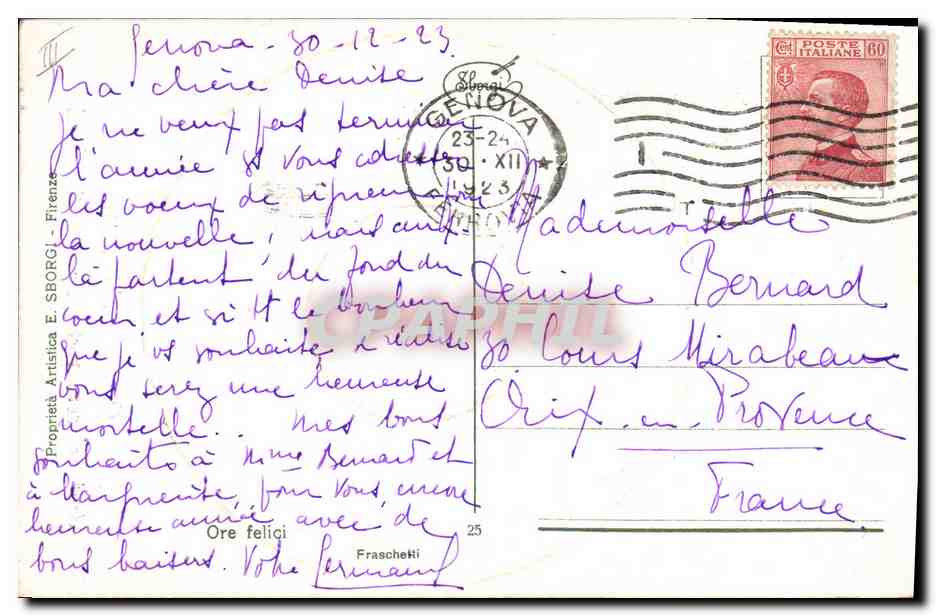 III
Genova - 30-12-23.
Ma chère Denise
Je ne veux pas terminer
l'année ss vous adresser
les voeux de
la nouvelle, mais ceux-
là partent du fond du
coeur et si tt le bonheur
que je vs souhaite se réalise
vous serez une heureuse
mortelle.. Mes bons
souhaits à Mme Bernard et
à Marguerite, pour vous, encore
heureuse année avec de
bons baisers. Votre Germaine
Proprietà Artistica E. SBORGI - Firenze
Ore felici
25
Fraschetti
Sborgi
GENOVA
23-24
30 · XII
1923
FERROVIA
POSTE
ITALIANE
Cent
60
CPAPHIL
Mademoiselle
Denise Bernard
30 Cours Mirabeau
Aix-en-Provence
France